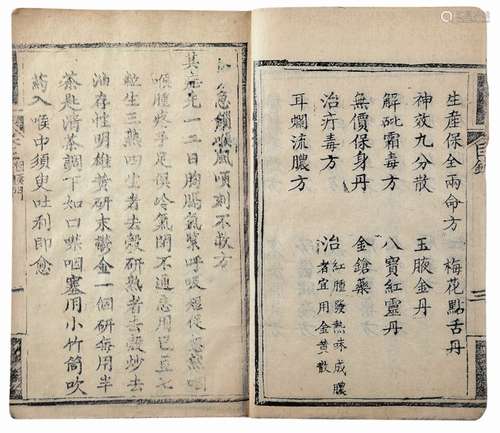 生產保全兩命方　梅花點舌丹
神效九分散　玉腋金丹
解砒霜毒方　八寶紅靈丹
無價保身丹　金鎗藥
治疔毒方　治紅腫發熱味成膿者宜用金黃散
耳爛流膿方
目錄
急鎖喉風頃刻不救方
其症先一二日胸膈氣緊呼吸短促忽然咽
喉腫疼手足俱冷氣閉不通急用巴豆七
粒生三熟四生者去殼研熟者去殼炒去
油存性明雄黃研末鬱金一個研每用半
茶匙清茶調下如口噤咽塞用小竹筒吹
葯入喉中須史吐利即愈